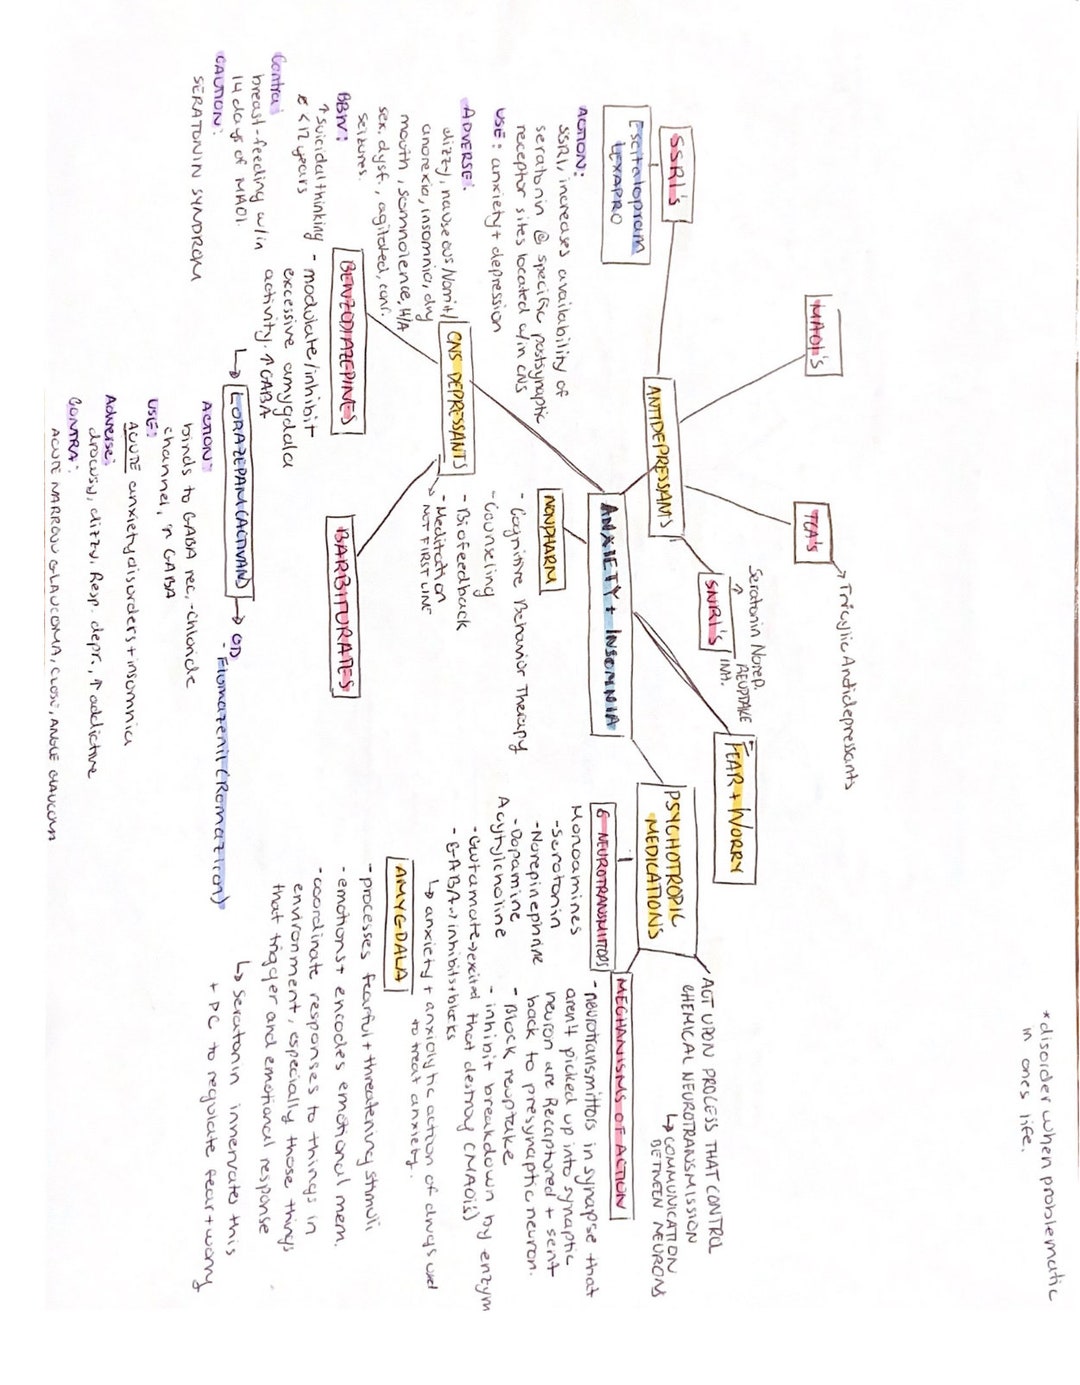 *disorder when problematic
in ones life.
MAOI's
TCA's
Tricylic Antidepressants
SSRI's
Escitalopram
LEXAPRO
ACTION:
SSRI, increases availability of
seratonin @ specific postsynaptic
receptor sites located w/in CNS
USE: anxiety + depression
ADVERSE:
dizzy, nauseous/Vomit/
anorexia, insomnia, dry
mouth, somnolence, H/A
sex. dysf., agitated, con.
seizures.
BBW:
↑ suicidal thinking
< 12 years
Contra:
breast-feeding w/in
14 days of MAOI.
CAUTION:
SERATONIN SYNDROM
ANTIDEPRESSANTS
SNRI's
Seratonin Norep.
REUPTAKE
INH.
FEAR + WORRY
ANXIETY + INSOMNIA
NONPHARM
- Cognitive Behavior Therapy
- Counseling
- Biofeedback
- Meditation
CNS DEPRESSANTS
NOT FIRST LINE
BENZODIAZEPINES
- modulate/inhibit
excessive amygdala
activity. ↑ GABA
BARBITURATES
↳ LORAZEPAM (ACTIVAN) → OD
- Flumazenil (Romaziron)
ACTION:
binds to GABA rec,-chloride
channel, ↑ GABA
USE:
ACUTE anxiety disorders + insomnia
Adverse:
drowsy, dizzy, Resp. depr., ↑ addictive
CONTRA:
ACUTE NARROW GLAUCOMA, CLOSE, ANGLE GLAUCOM
PSYCHOTROPIC
MEDICATIONS
ACT UPON PROCESS THAT CONTROL
CHEMICAL NEUROTRANSMISSION
↳ COMMUNICATION
BETWEEN NEURONS
6 NEUROTRANSMITTORS
Monoamines
- Serotonin
- Norepinephrine
- Dopamine
Acytylcholine
- Glutamate → excited
- GABA → inhibits + blocks
↳ anxiety + anxiolytic action of drugs used
to treat anxiety.
MECHANISMS OF ACTION
- neurotransmittors in synapse that
aren't picked up into synaptic
neuron are Recaptured + sent
back to presynaptic neuron.
- Block reuptake
- inhibit breakdown by enzym
that destroy (MAOi's)
AMYGDALA
- processes fearful + threatening stimuli
- emotions + encodes emotional mem.
- coordinate responses to things in
environment, especially those things
that trigger and emotional response
↳ Seratonin innervates this
+ PC to regulate fear + worry